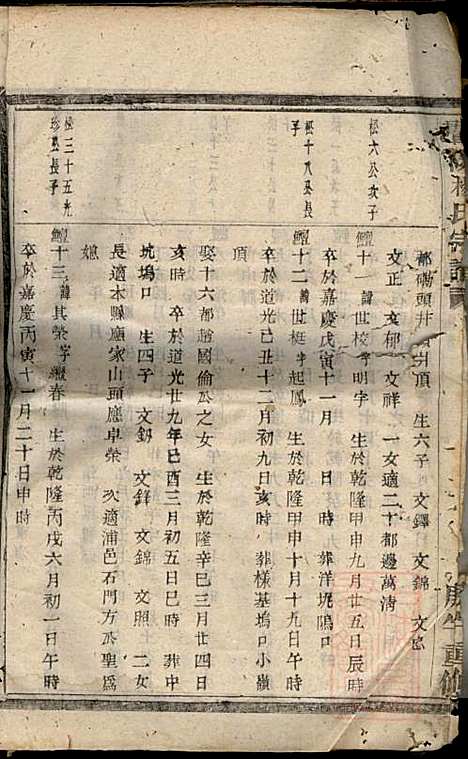 都碼頭井 井頂 生六子 文鐸 文錦 文
文正 文郁 文祥 一女適二十都邊萬清
松六公次子
鱷十一 諱世校字明字 生於乾隆甲申九月廿五日辰時
卒於嘉慶戊寅十一月 日 時 葬洋坑塢口
松十八公長子
鱷十二 諱世梃字起鳳 生於乾隆甲申十月十九日午時
卒於道光己丑十二月初九日亥時 葬樣基塢口小嶺
頂
娶十六都趙國倫公之女 生於乾隆辛巳三月廿四日
亥時 卒於道光廿九年己酉三月初五日巳時 葬中
坑塢口 生四子 文釗 文鋒 文錦 文照 二女
長適本縣應家山頭應卓榮 次適浦邑石門方於聖為
媳
松三十五
珍公長子
鱷十三 諱其榮字繼春 生於乾隆丙戌六月初一日午時
卒於嘉慶丙寅十一月二十日申時
氏宗譜
牛重修